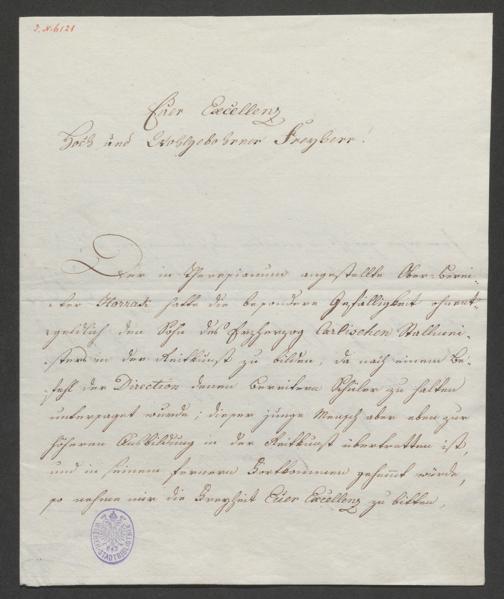 J. N. 6121
Euer Excellenz
Hoch und Wohlgebohrner Freyherr!
Der in Theresianum angestellte Ober-Berei-
ter Horrak hatte die besondere Gefälligkeit ohnent-
geldlich den Sohn des Erzherzog Carlischen Stallmei-
sters in der Reitkunst zu bilden, da nach einem Be-
fehl der Direction denen Bereitern Schüler zu halten
untersaget wurde; dieser junge Mensch aber eben zur
höheren Ausbildung in der Reitkunst übertretten ist,
und in seinem fernern Fortkommen gehemmt würde,
so nehme mir die Freyheit Euer Excellenz zu bitten,